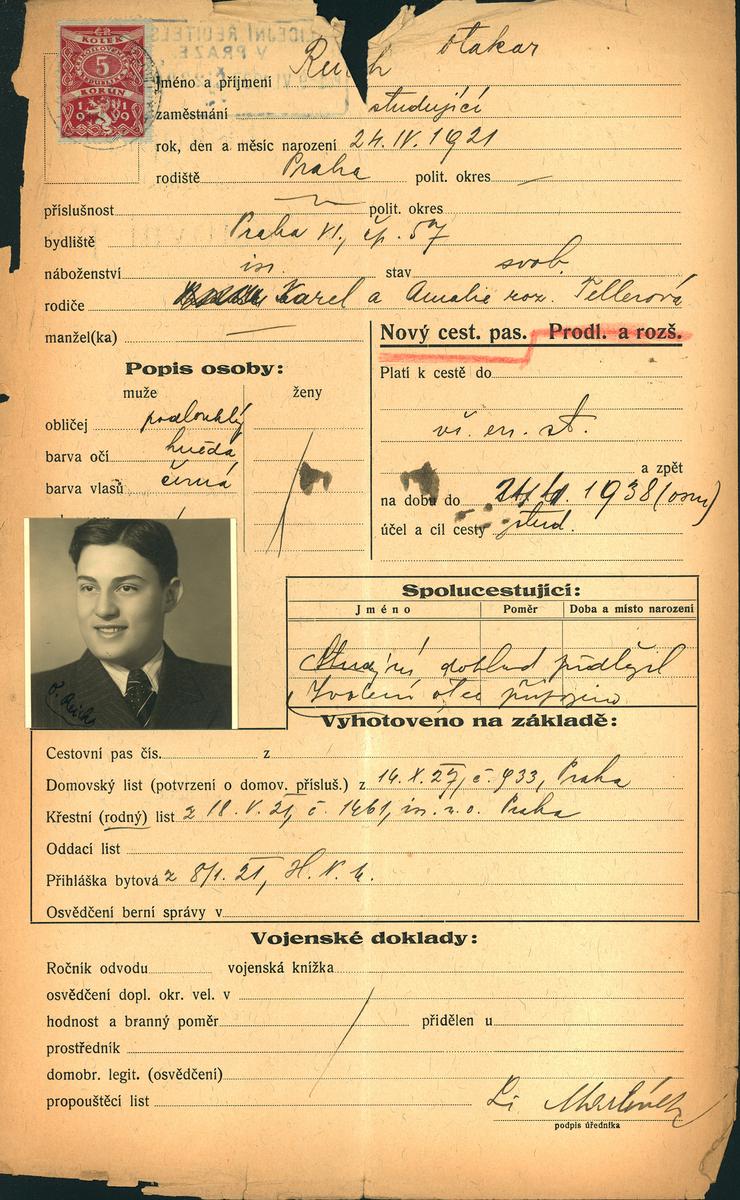 KOLEK
5
KORUN
1919
Jméno a příjmení Reich Otakar
zaměstnání studující
rok, den a měsíc narození 24. IV. 1921
rodiště Praha polit. okres —
příslušnost polit. okres
bydliště Praha VI., čp. 57
náboženství isr. stav svob.
rodiče Karel a Amalie roz. Tellerová
manžel(ka) —
Nový cest. pas. Prodl. a rozš.
Popis osoby:
muže ženy
obličej podlouhlý
barva očí hnědá
barva vlasů černá
Platí k cestě do
vš. en. st.
a zpět
na dobu do 1938 (osm)
účel a cíl cesty stud.
O. Reich
Spolucestující:
Jméno Poměr Doba a místo narození
Studijní doklad předložil
Svolení otce připojeno
Vyhotoveno na základě:
Cestovní pas čís. z
Domovský list (potvrzení o domov. přísluš.) z 14. X. 27, č. 933, Praha
Křestní (rodný) list z 18. V. 21, č. 1461, is. n. o. Praha
Oddací list
Přihláška bytová z 8/1. 21,
Osvědčení berní správy v
Vojenské doklady:
Ročník odvodu vojenská knížka
osvědčení dopl. okr. vel. v
hodnost a branný poměr přidělen u
prostředník
domobr. legit. (osvědčení)
propouštěcí list
podpis úředníka